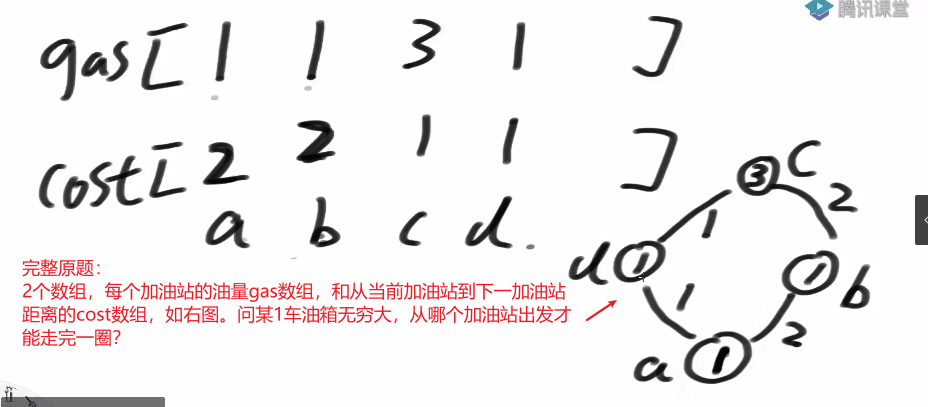 腾讯课堂
gas[ 1 1 3 1 ]
cost[ 2 2 1 1 ]
a b c d.
完整原题：
2个数组，每个加油站的油量gas数组，和从当前加油站到下一加油站
距离的cost数组，如右图。问某1车油箱无穷大，从哪个加油站出发才
能走完一圈？
3 C
1 2
d 1 1 b
1 2
a 1